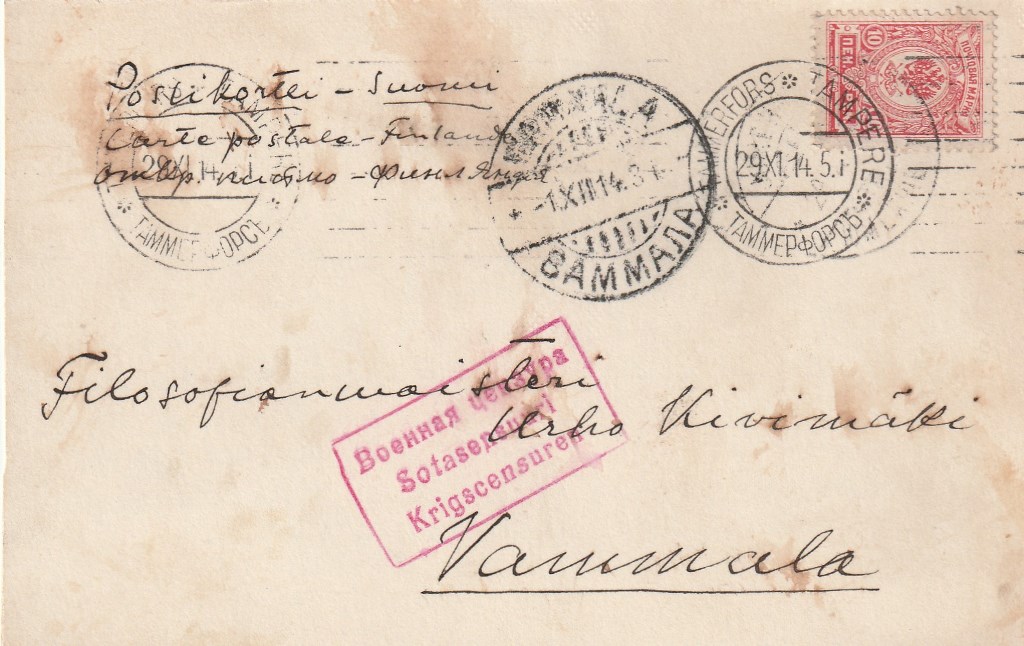 Postikortti - Suomi
Carte postale - Finlande
- Финляндія
TAMMERFORS * TAMPERE *
29.XI.14.5.i
ТАММЕРФОРСЪ
29.XI.14.
* ТАММЕРФОРСЪ *
VAMMALA
-1.XII.14.3 i
ВАММАЛА
10
ПЕН.
ПОЧТОВАЯ МАРКА
Filosofianmaisteri
Urho Kivimäki
Vammala
Военная цензура
Sotasensuuri
Krigscensuren